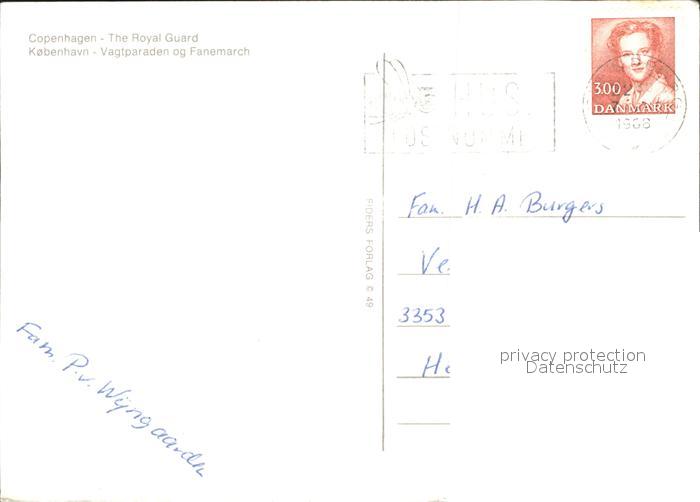 Copenhagen - The Royal Guard
København - Vagtparaden og Fanemarch
3.00
DANMARK
1988
HUS.
FIDERS FORLAG © 49
Fam. H. A. Burgers
Ve
3353
He
privacy protection
Datenschutz
Fam. P. v. Wijngaarden